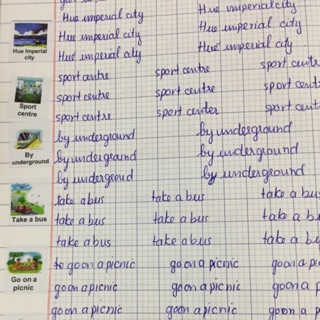 Hue imperial city Hue imperial city
Hue imperial city Hue imperial city
Hue imperial city Hue imperial city
Hue Imperial city
sport centre sport centre sport
sport centre sport centre sport
sport centre sport center sport
Sport centre
by underground by underground
by underground by underground
by undergeoud by underground
By underground
take a bus take a bus take a bus
take a bus take a bus take a
take a bus take a bus take a
Take a bus
to go on a picnic go on a picnic go on a
go on a picnic go on a picnic go on a
go on a picnic go on a picnic go on a
Go on a picnic